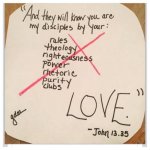 "And they will know you are
my disciples by your:
rules
theology
righteousness
power
rhetoric
purity
clubs
LOVE."
- John 13.35